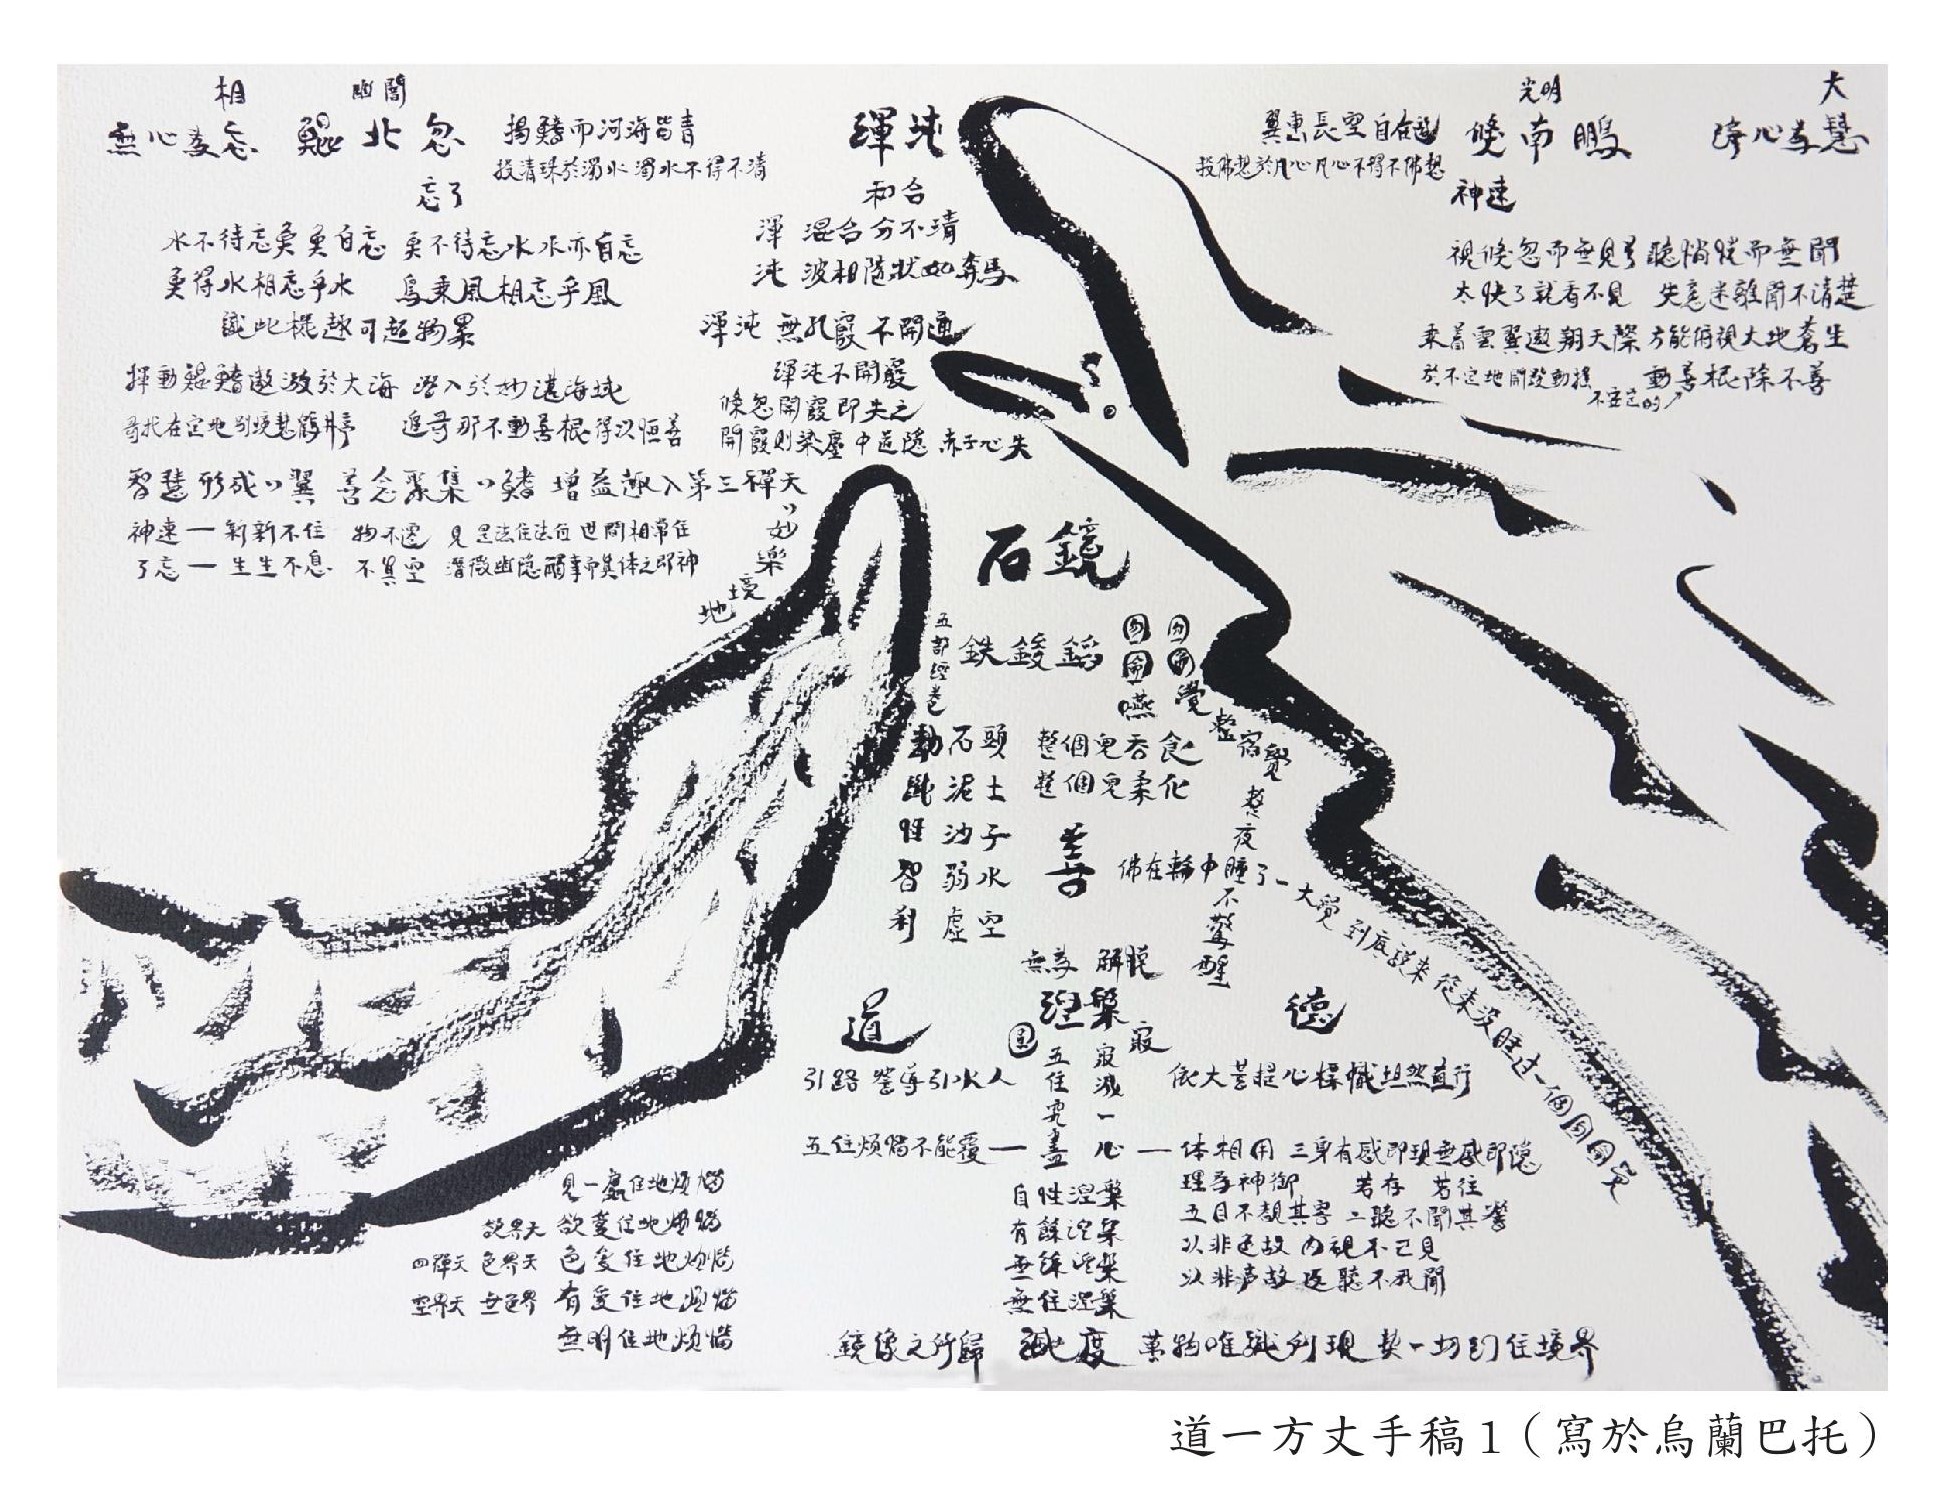 相 幽闇
無心為忘 鯤北忽
忘了
揚鰭而河海皆青
投清珠於濁水 濁水不得不清
水不待忘魚 魚自忘 魚不待忘水 水亦自忘
魚得水相忘乎水 鳥乘風相忘乎風
識此機趣可超物累
揮動鯤鰭遨游於大海 潛入於妙湛海域
智慧形成"翼 善念聚集"鰭 增益趣入第三禪天
"妙樂境地
神速一新新不住 物不遷 見是法住法位 世間相常住
了忘一生生不息 不真空
渾沌
和合
渾 混合分不清
沌 波相隨狀如奔馬
渾沌 無孔竅不開通
渾沌不開竅
倏忽開竅即失之
開竅則染塵中道隱 赤子心失
光明 大
倏南鵬
神速
投佛想於凡心 凡心不得不佛想
視倏忽而無見 聽惝恍而無聞
太快了就看不見 失意迷離聞不清楚
乘着雲翼遨翔天際 方能俯視大地蒼生
動善根除不善
石鏡
五部經卷
石頭
泥土
沙子
弱水
虛空
整個兒吞食
整個兒柔化
整宿覺
整夜不驚醒
善
佛在輪中睡了一大覺 到底說來 從來沒睡過一個囫圇覺
無為 解脫
道
涅槃
德
圓
寂
五住究盡
寂滅一心
引路 營導引水人
依大菩提心幟 坦然直行
五住煩惱不能覆一
一体相用 三身有感即現無感即隱
理為神御 若存 若往
五目不覩其容 二聽不聞其響
以非色故 內視不己見
以非声故 返聽不我聞
自性涅槃
有餘涅槃
無餘涅槃
無住涅槃
見一處住地煩惱
欲界天 欲愛住地煩惱
四禪天 色界天 色愛住地煩惱
空界天 無色界 有愛住地煩惱
無明住地煩惱
鏡像之所歸
萬物唯識所現
道一方丈手稿1（寫於烏蘭巴托）